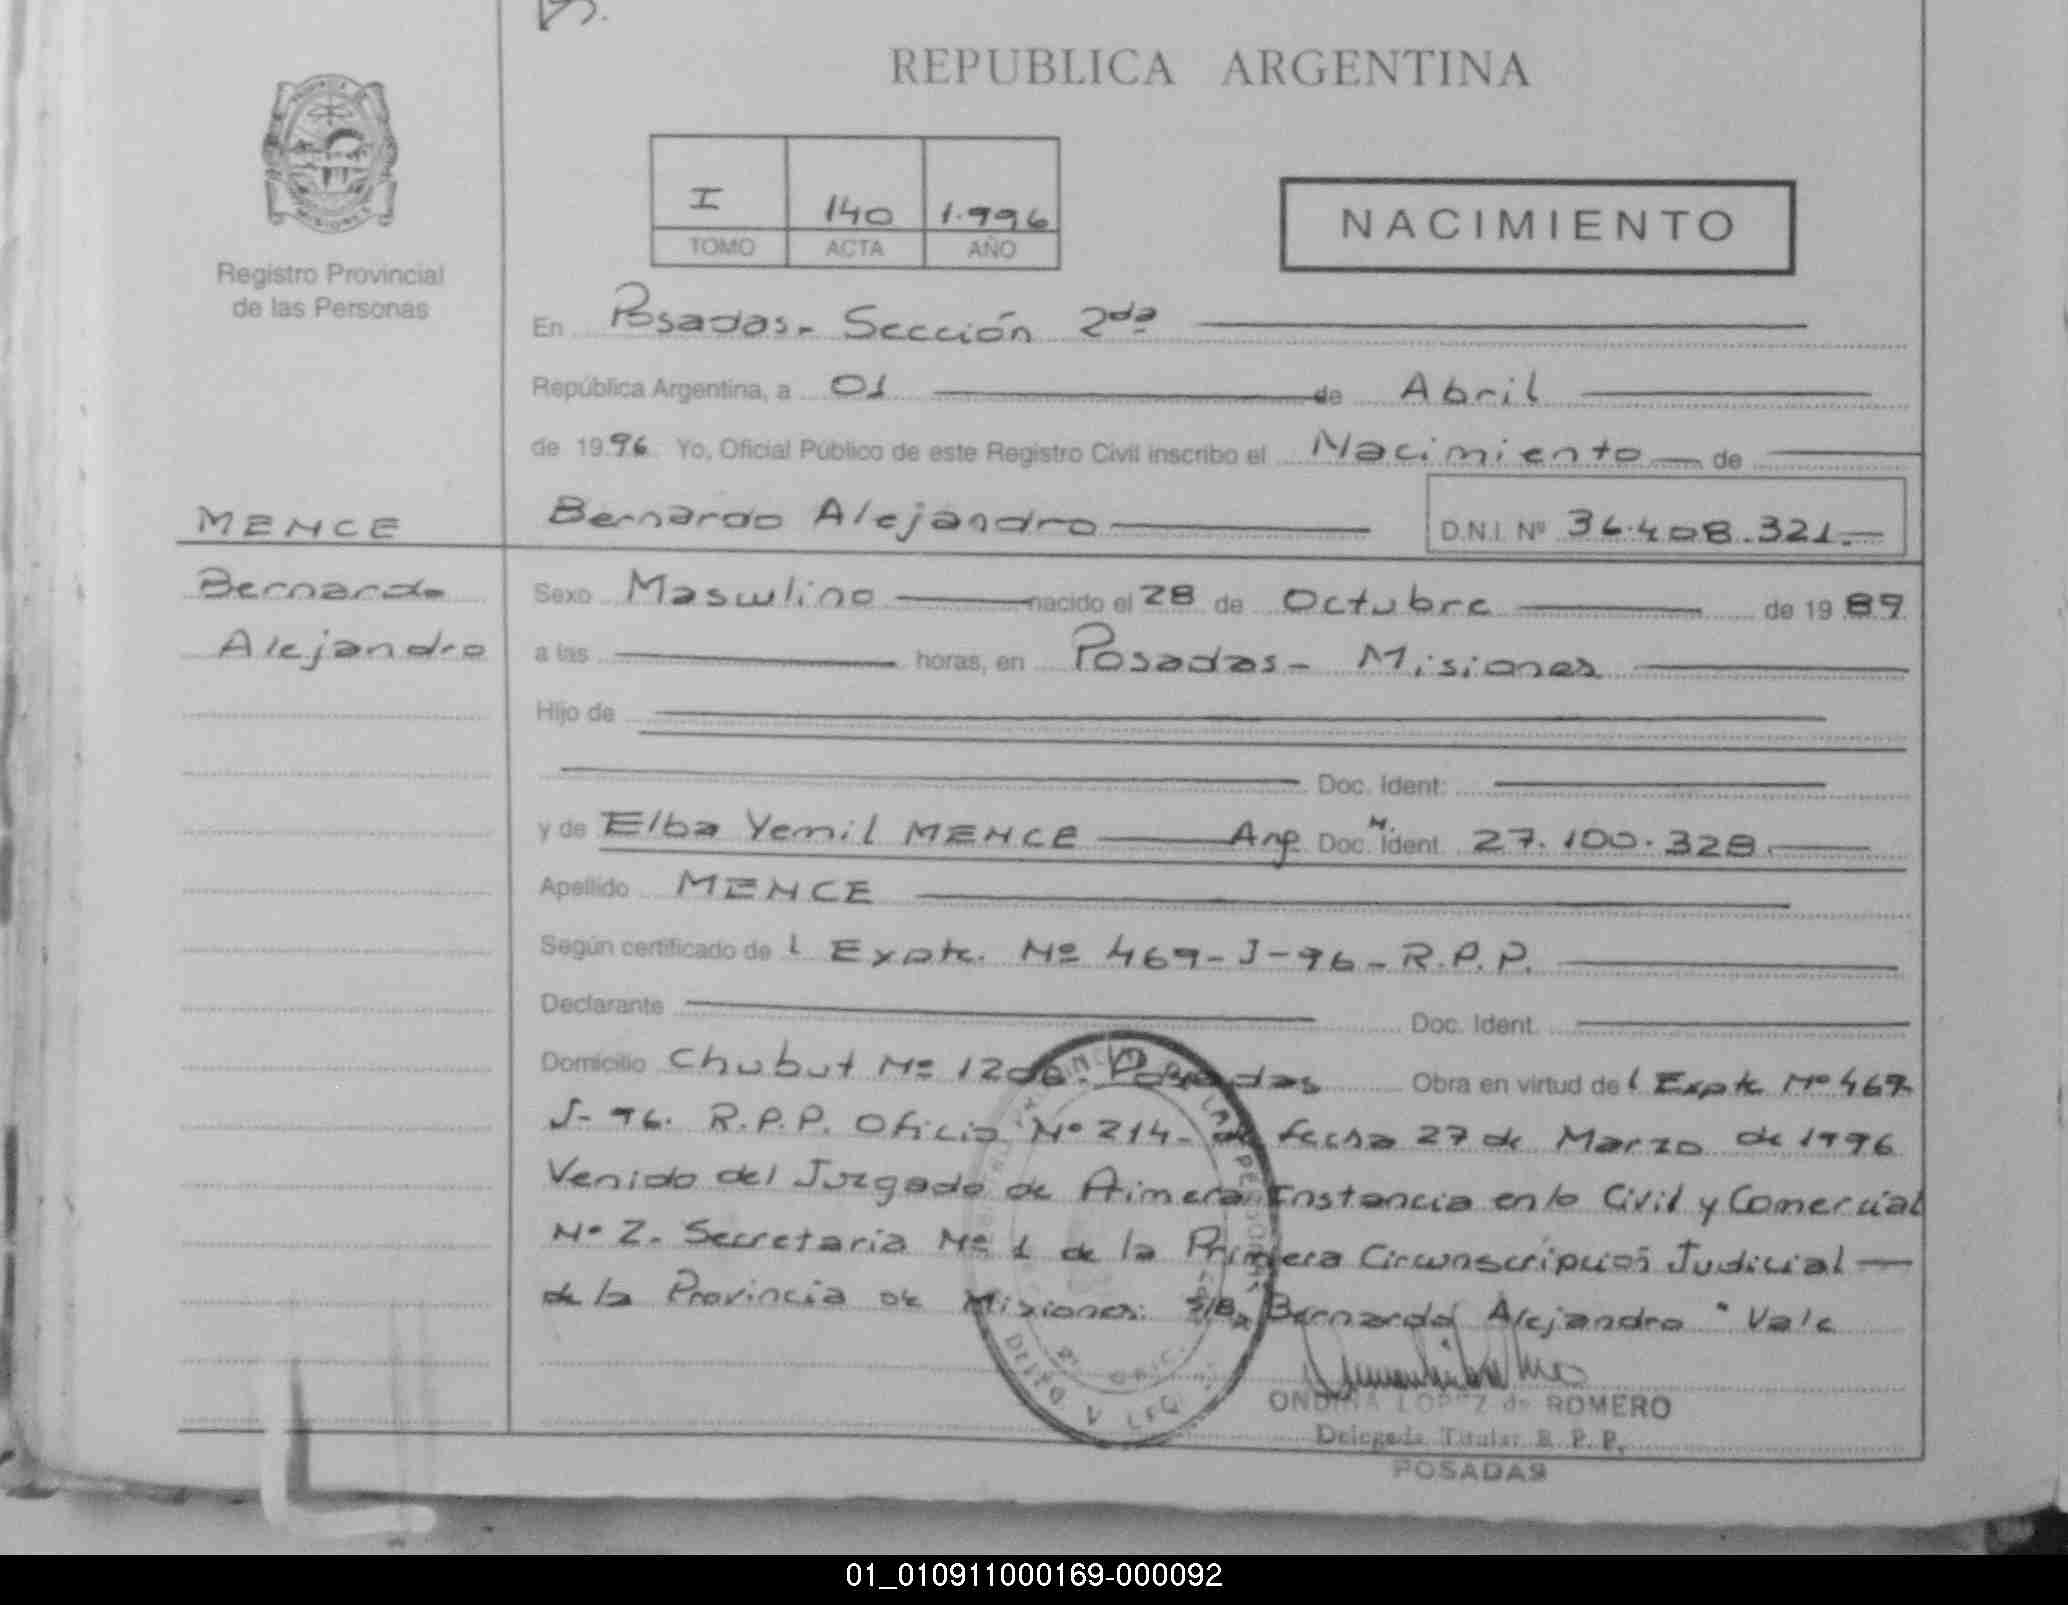 REPUBLICA ARGENTINA
I 140 1.996
TOMO ACTA AÑO
NACIMIENTO
Registro Provincial
de las Personas
En Posadas. Sección 2da
República Argentina, a 01 de Abril
de 1996 Yo, Oficial Público de este Registro Civil inscribo el Nacimiento de
MENCE
Bernardo Alejandro D.N.I. Nº 34.408.321.
Bernardo
Alejandro
Sexo Masculino nacido el 28 de Octubre de 1989
a las horas, en Posadas - Misiones
Hijo de
Doc. Ident.
y de Elba Yemil MENCE Arg. Doc. M. Ident. 27.100.328.
Apellido MENCE
Según certificado de l Expte. Nº 469-J-96-R.P.P.
Declarante Doc. Ident.
Domicilio Chubut Nº Posadas Obra en virtud de l Expte Nº 469
J-96. R.P.P. Oficio Nº 214- de fecha 27 de Marzo de 1996
Venido del Juzgado de Primera Instancia en lo Civil y Comercial
Nº 2. Secretaria Nº 1 de la Primera Circunscripción Judicial
de la Provincia de Misiones. S/B Bernardo Alejandro " Vale
ONDINA LOPEZ de ROMERO
Delegada Titular R. P. P.
POSADAS
01_010911000169-000092